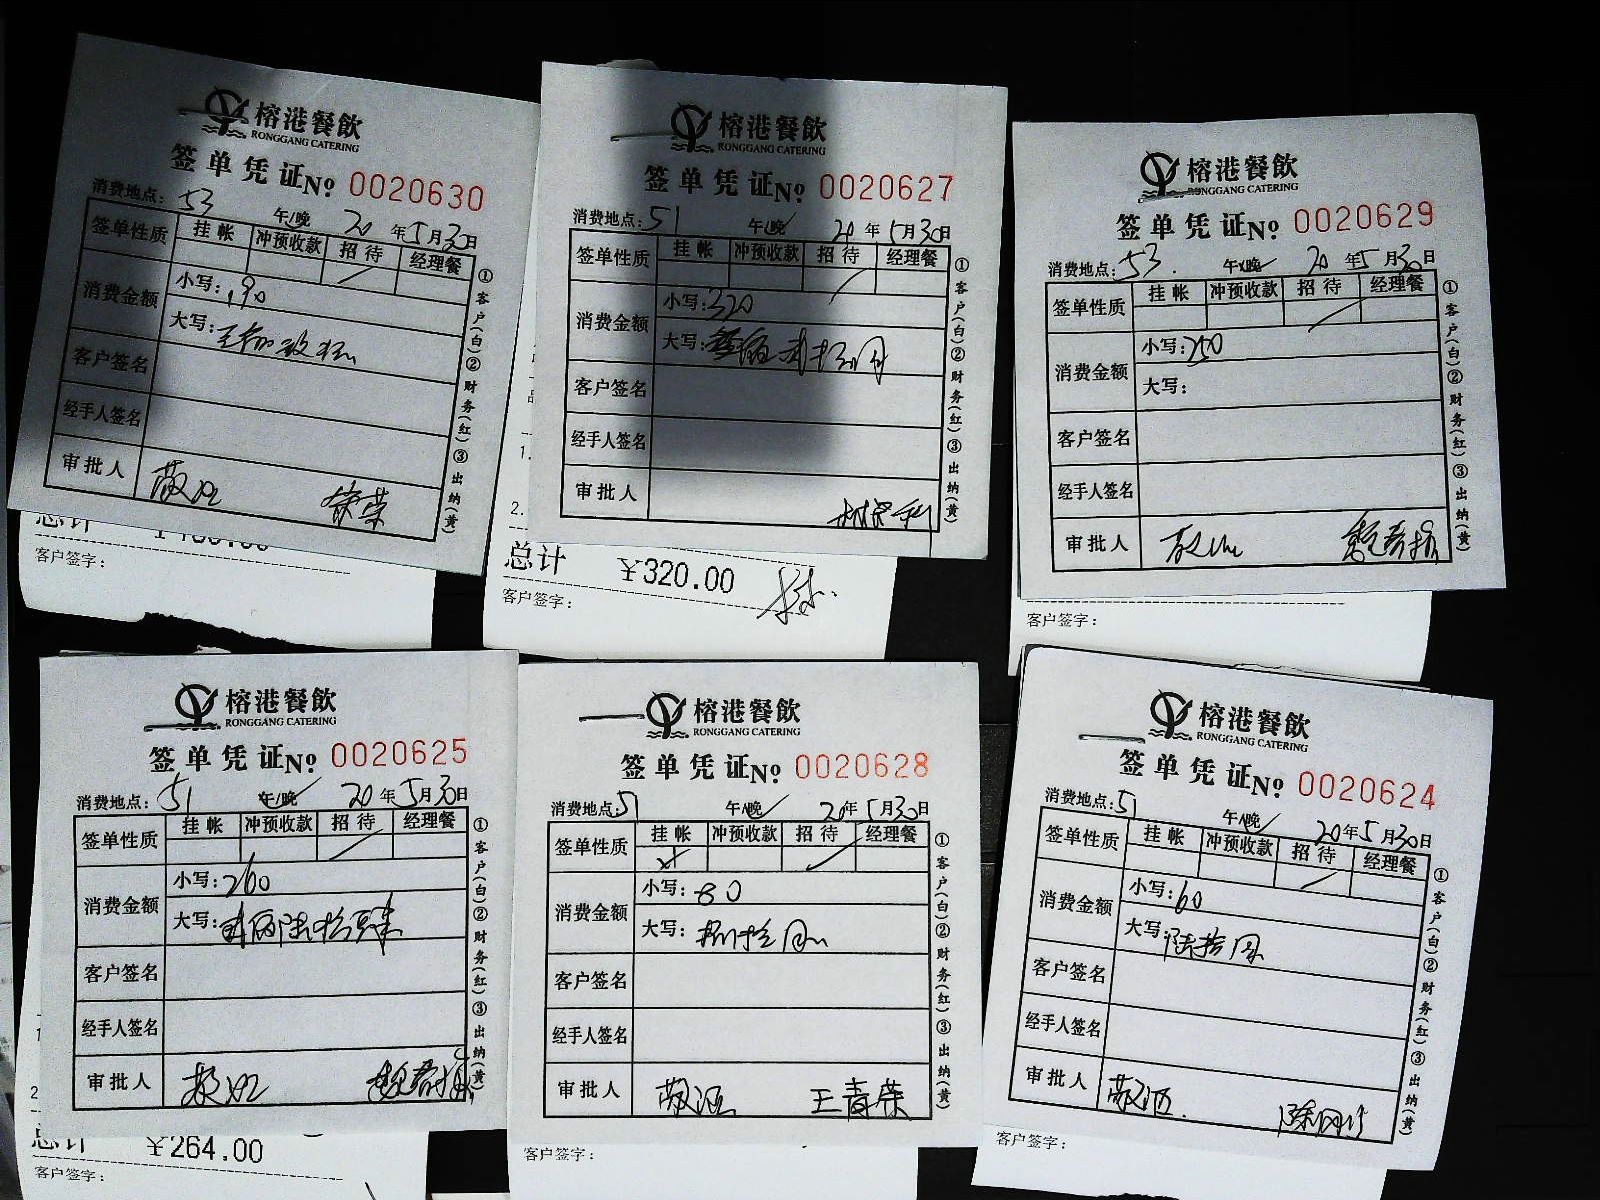 榕港餐飲
RONGGANG CATERING
签单凭证No 0020630
消费地点: 53 午/晚 20 年5月30日
签单性质 挂帐 冲预收款 招待 经理餐
消费金额 小写: 190
大写:
客户签名
经手人签名
审批人
①客户(白)②财务(红)③出纳(黄)
总计
客户签字:
榕港餐飲
RONGGANG CATERING
签单凭证No 0020627
消费地点: 51 午/晚 20 年5月30日
签单性质 挂帐 冲预收款 招待 经理餐
消费金额 小写: 320
大写:
客户签名
经手人签名
审批人
①客户(白)②财务(红)③出纳(黄)
总计 ¥320.00
客户签字:
榕港餐飲
RONGGANG CATERING
签单凭证No 0020629
消费地点: 53 午/晚 20 年5月30日
签单性质 挂帐 冲预收款 招待 经理餐
消费金额 小写: 250
大写:
客户签名
经手人签名
审批人
①客户(白)②财务(红)③出纳(黄)
客户签字:
榕港餐飲
RONGGANG CATERING
签单凭证No 0020625
消费地点: 51 午/晚 20年5月30日
签单性质 挂帐 冲预收款 招待 经理餐
消费金额 小写: 260
大写: 贰佰陆拾
客户签名
经手人签名
审批人
①客户(白)②财务(红)③出纳(黄)
总计 ¥264.00
客户签字:
榕港餐飲
RONGGANG CATERING
签单凭证No 0020628
消费地点: 51 午/晚 20年5月30日
签单性质 挂帐 冲预收款 招待 经理餐
消费金额 小写: 80
大写: 捌拾
客户签名
经手人签名
审批人 王青荣
①客户(白)②财务(红)③出纳(黄)
客户签字:
榕港餐飲
RONGGANG CATERING
签单凭证No 0020624
消费地点: 51 午/晚 20年5月30日
签单性质 挂帐 冲预收款 招待 经理餐
消费金额 小写: 60
大写: 陆拾
客户签名
经手人签名
审批人
①客户(白)②财务(红)③出纳(黄)
客户签字: